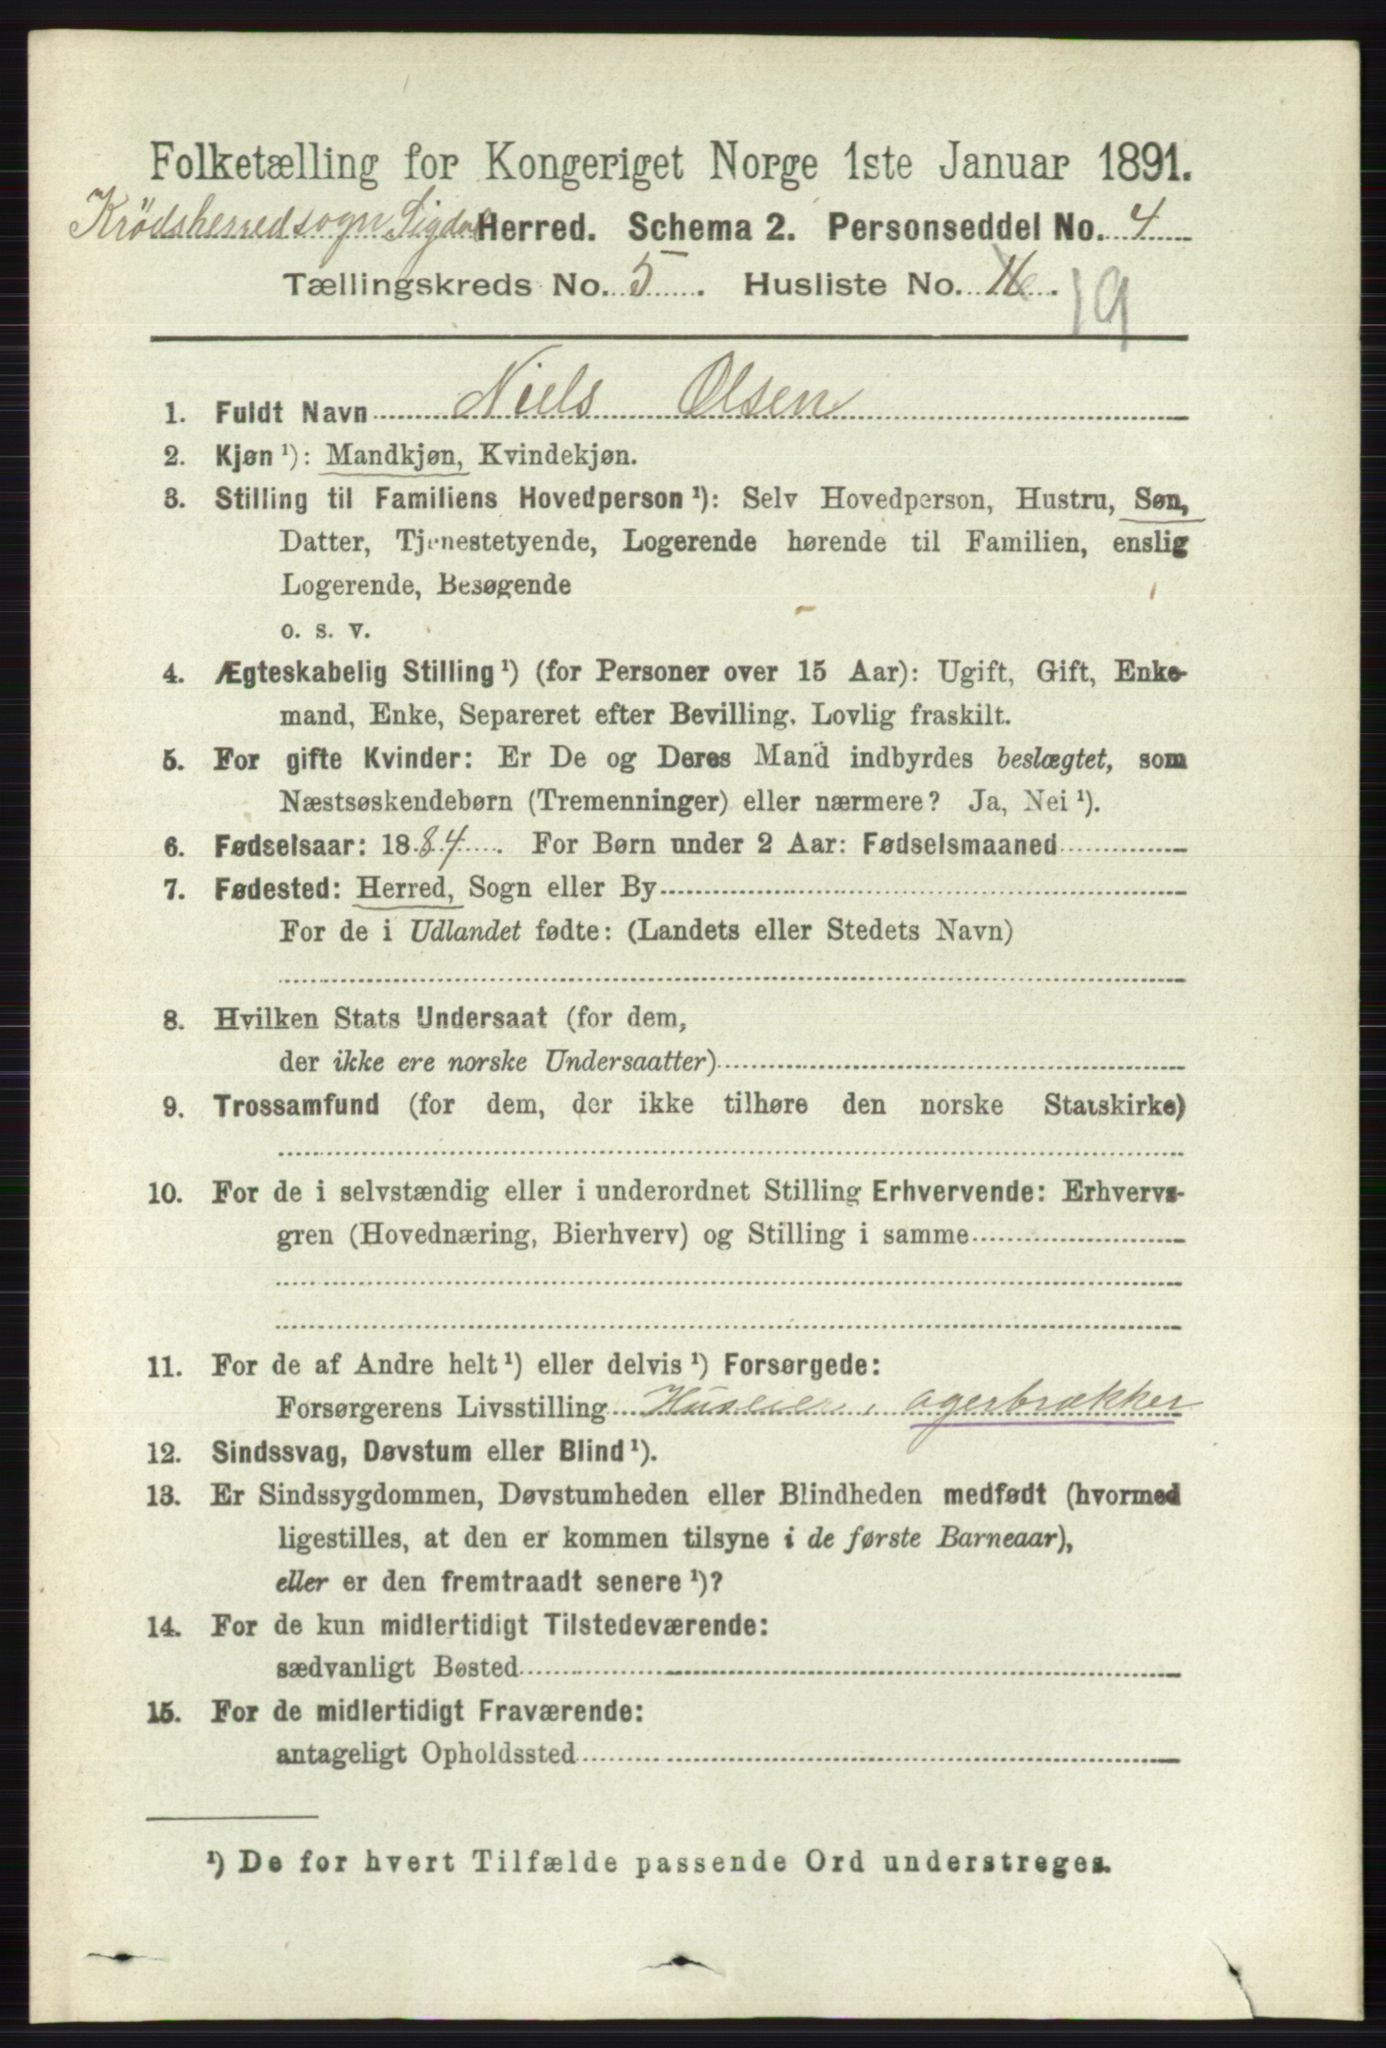 Folketælling for Kongeriget Norge 1ste Januar 1891.
Krødsherred sogn Sigdal Herred. Schema 2. Personseddel No. 4
Tællingskreds No. 5. Husliste No. 16. 19
1. Fuldt Navn Niels Olsen
2. Kjøn ¹): Mandkjøn, Kvindekjøn.
3. Stilling til Familiens Hovedperson ¹): Selv Hovedperson, Hustru, Søn,
Datter, Tjenestetyende, Logerende hørende til Familien, enslig
Logerende, Besøgende
o. s. v.
4. Ægteskabelig Stilling ¹) (for Personer over 15 Aar): Ugift, Gift, Enke-
mand, Enke, Separeret efter Bevilling. Lovlig fraskilt.
5. For gifte Kvinder: Er De og Deres Mand indbyrdes beslægtet, som
Næstsøskendebørn (Tremenninger) eller nærmere? Ja, Nei ¹).
6. Fødselsaar: 1884. For Børn under 2 Aar: Fødselsmaaned
7. Fødested: Herred, Sogn eller By
For de i Udlandet fødte: (Landets eller Stedets Navn)
8. Hvilken Stats Undersaat (for dem,
der ikke ere norske Undersaatter)
9. Trossamfund (for dem, der ikke tilhøre den norske Statskirke)
10. For de i selvstændig eller i underordnet Stilling Erhvervende: Erhvervs-
gren (Hovednæring, Bierhverv) og Stilling i samme
11. For de af Andre helt ¹) eller delvis ¹) Forsørgede:
Forsørgerens Livsstilling Huseier, agerbrækker
12. Sindssvag, Døvstum eller Blind ¹).
13. Er Sindssygdommen, Døvstumheden eller Blindheden medfødt (hvormed
ligestilles, at den er kommen tilsyne i de første Barneaar),
eller er den fremtraadt senere ¹)?
14. For de kun midlertidigt Tilstedeværende:
sædvanligt Bosted
15. For de midlertidigt Fraværende:
antageligt Opholdssted
¹) De for hvert Tilfælde passende Ord understreges.